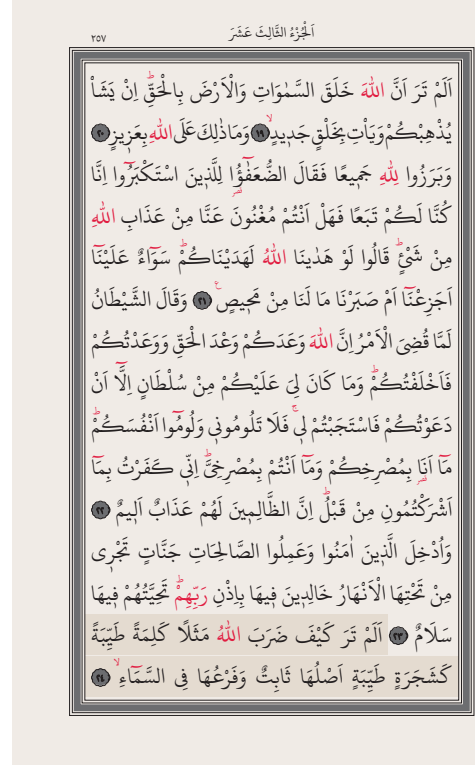 اَلْجُزْءُ الثَّالِثَ عَشَرَ
٢٥٧
اَلَمْ تَرَ اَنَّ اللّٰهَ خَلَقَ السَّمٰوَاتِ وَالْاَرْضَ بِالْحَقِّۜ اِنْ يَشَأْ
يُذْهِبْكُمْ وَيَأْتِ بِخَلْقٍ جَدِيدٍۙ ﴿١٩﴾ وَمَا ذٰلِكَ عَلَى اللّٰهِ بِعَزِيزٍ ﴿٢٠﴾
وَبَرَزُوا لِلّٰهِ جَمِيعًا فَقَالَ الضُّعَفٰٓؤُ۬ا لِلَّذِينَ اسْتَكْبَرُٓوا اِنَّا
كُنَّا لَكُمْ تَبَعًا فَهَلْ اَنْتُمْ مُغْنُونَ عَنَّا مِنْ عَذَابِ اللّٰهِ
مِنْ شَيْءٍۜ قَالُوا لَوْ هَدٰينَا اللّٰهُ لَهَدَيْنَاكُمْۜ سَوَٓاءٌ عَلَيْنَٓا
اَجَزِعْنَٓا اَمْ صَبَرْنَا مَا لَنَا مِنْ مَحِيصٍ۟ ﴿٢١﴾ وَقَالَ الشَّيْطَانُ
لَمَّا قُضِيَ الْاَمْرُ اِنَّ اللّٰهَ وَعَدَكُمْ وَعْدَ الْحَقِّ وَوَعَدْتُكُمْ
فَاَخْلَفْتُكُمْۜ وَمَا كَانَ لِيَ عَلَيْكُمْ مِنْ سُلْطَانٍ اِلَّٓا اَنْ
دَعَوْتُكُمْ فَاسْتَجَبْتُمْ لِيۚ فَلَا تَلُومُونِي وَلُومُٓوا اَنْفُسَكُمْۜ
مَٓا اَنَا۬ بِمُصْرِخِكُمْ وَمَٓا اَنْتُمْ بِمُصْرِخِيَّۜ اِنِّي كَفَرْتُ بِمَٓا
اَشْرَكْتُمُونِ مِنْ قَبْلُۜ اِنَّ الظَّالِمِينَ لَهُمْ عَذَابٌ اَلِيمٌ ﴿٢٢﴾
وَاُدْخِلَ الَّذِينَ اٰمَنُوا وَعَمِلُوا الصَّالِحَاتِ جَنَّاتٍ تَجْرِي
مِنْ تَحْتِهَا الْاَنْهَارُ خَالِدِينَ فِيهَا بِاِذْنِ رَبِّهِمْۜ تَحِيَّتُهُمْ فِيهَا
سَلَامٌ ﴿٢٣﴾ اَلَمْ تَرَ كَيْفَ ضَرَبَ اللّٰهُ مَثَلًا كَلِمَةً طَيِّبَةً
كَشَجَرَةٍ طَيِّبَةٍ اَصْلُهَا ثَابِتٌ وَفَرْعُهَا فِي السَّمَٓاءِۙ ﴿٢٤﴾